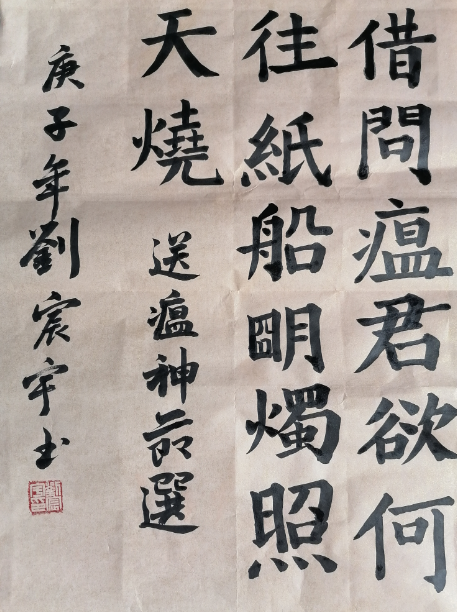 借問瘟君欲何
往紙船朙燭照
天燒
送瘟神節選
庚子年劉宸宇书